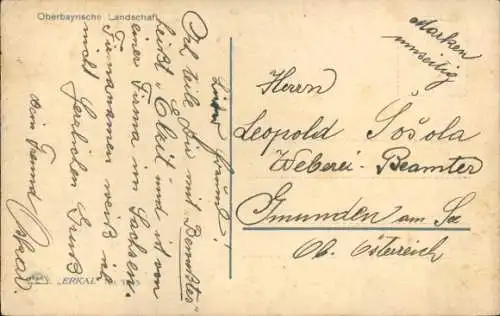 Oberbayrische Landschaft
Lieber Freund!
Ich teile Dir mit "Bewußtes"
heißt "Elait" und ist von
einer Firma in Sachsen.
Firmanamen weiß ich
nicht Herzlichen Gruß
dein Freund
Marken
umseitig
Herrn
Leopold Sošola
Weberei-Beamter
Gmunden am See
Ob. Österreich
"ERKAL"